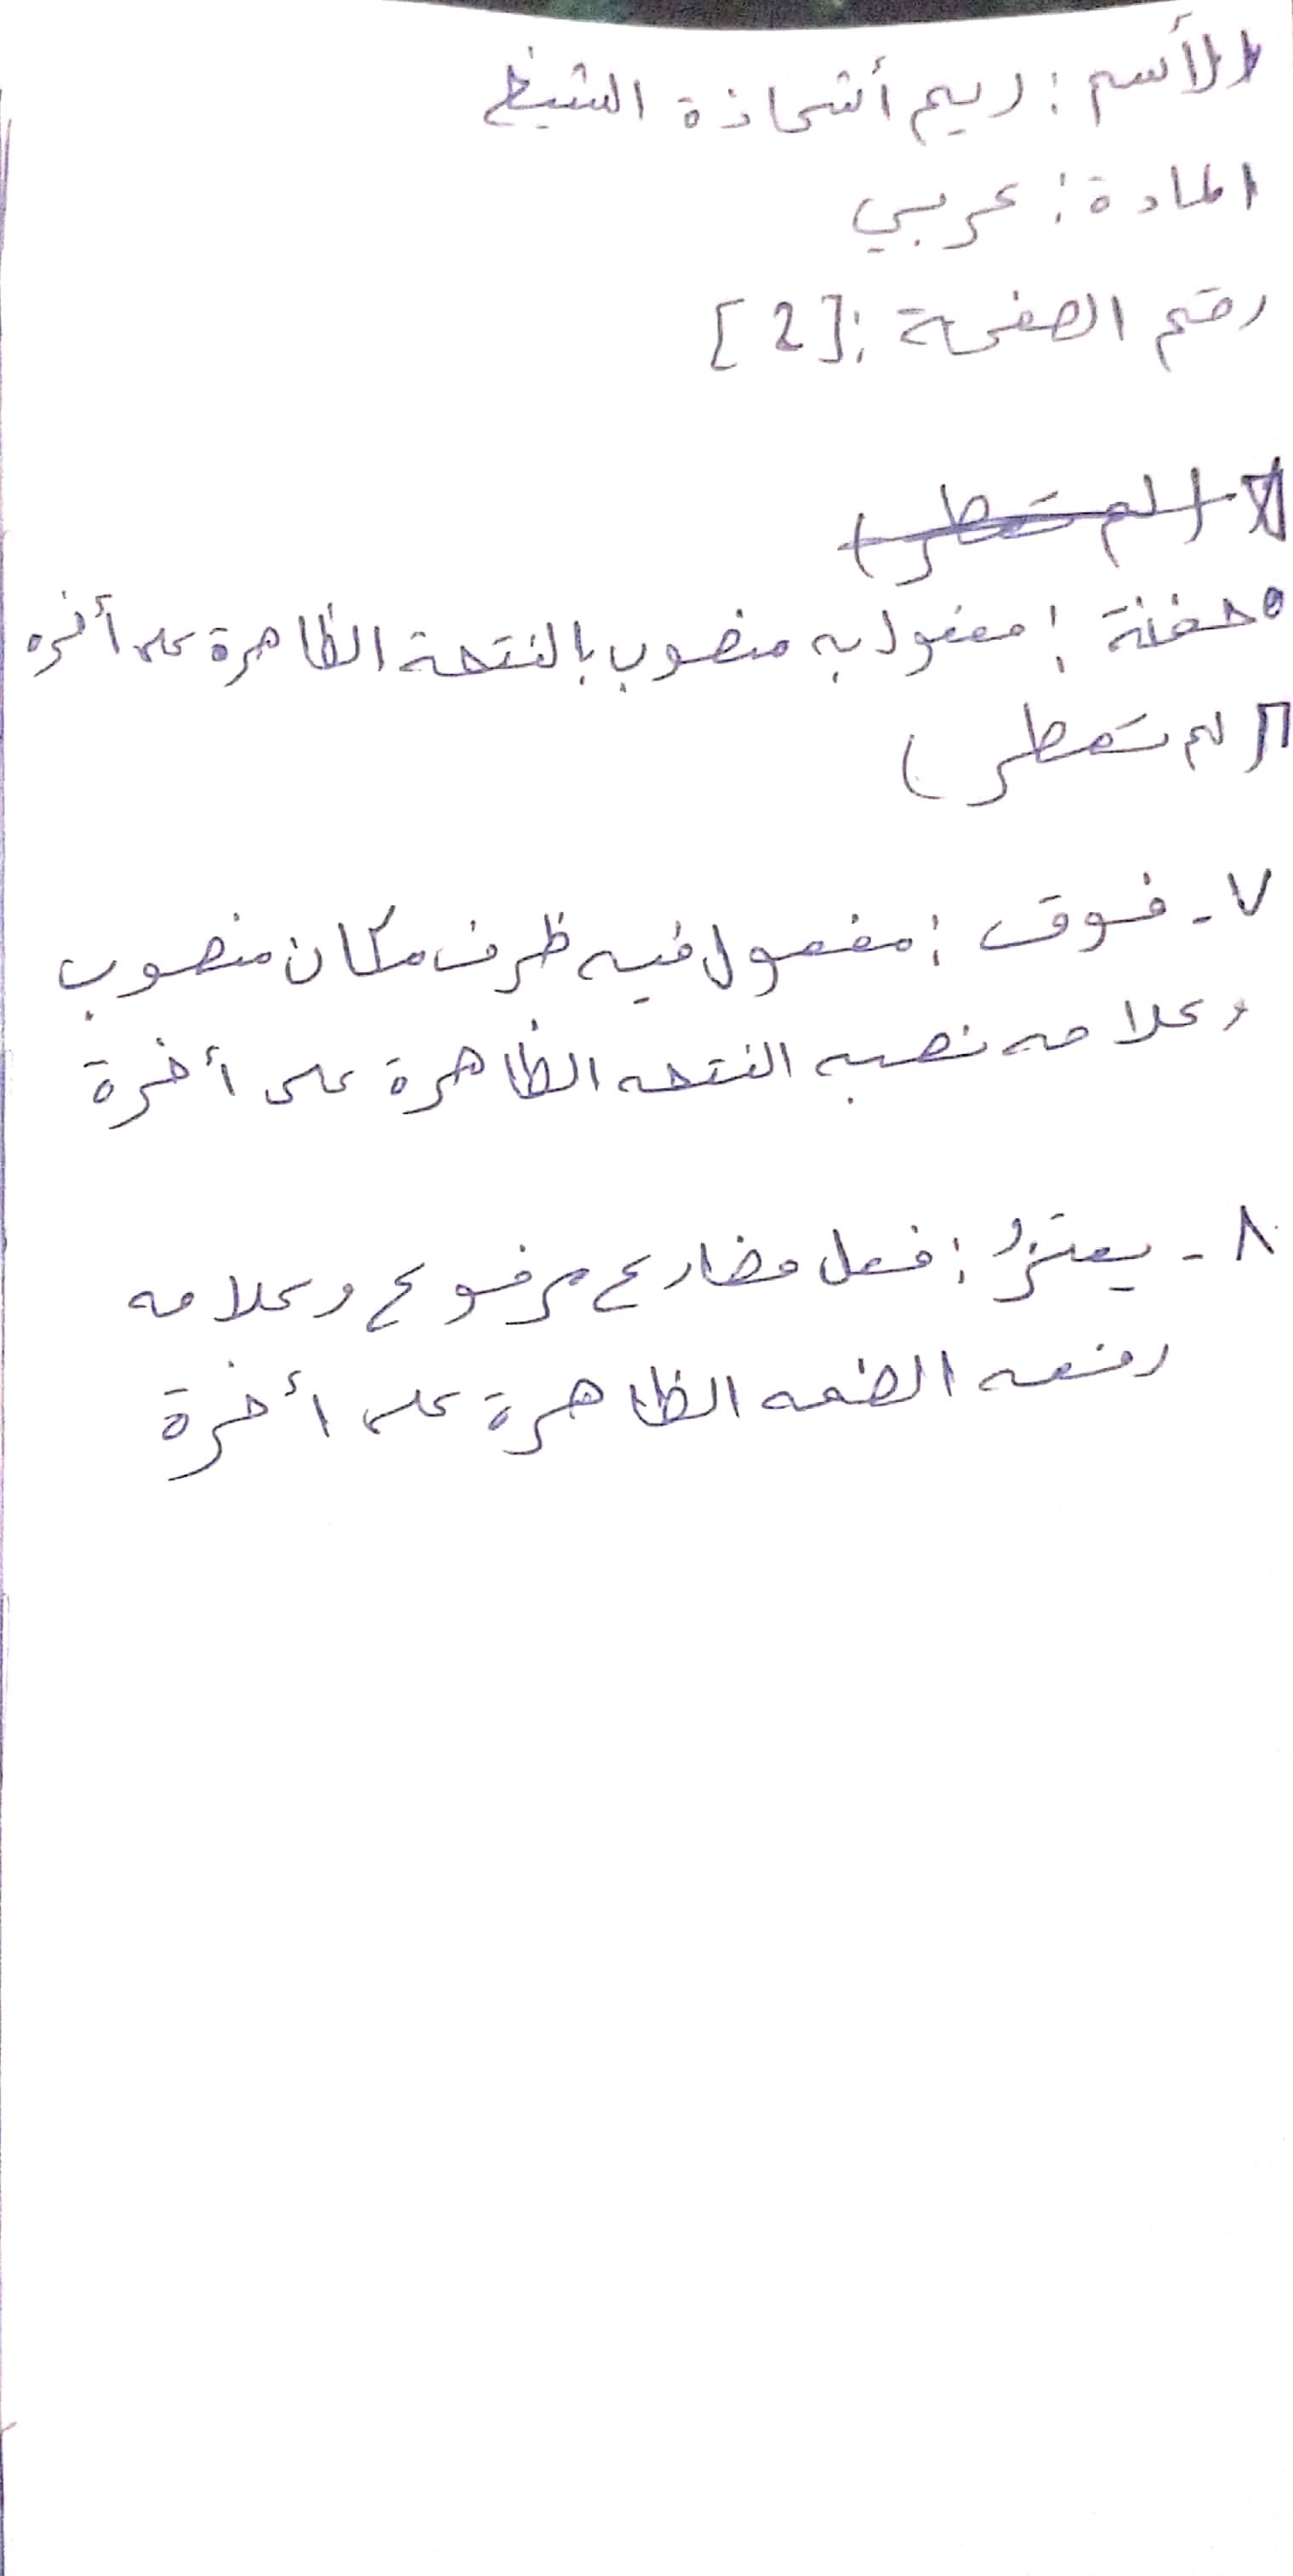 الأسم : ريم أشحاذة الشيخ
المادة : عربي
رقم الصفحة : [2]
(لم تمطر)
٥ حفنة : مفعول به منصوب بالفتحة الظاهرة على أخره
٦ (لم تمطر)
٧ - فوق : مفعول فيه ظرف مكان منصوب
وعلامه نصبه الفتحه الظاهرة على أخرة
٨ - يعتزُ : فعل مضارع مرفوع وعلامه
رفعه الضمه الظاهرة على أخرة